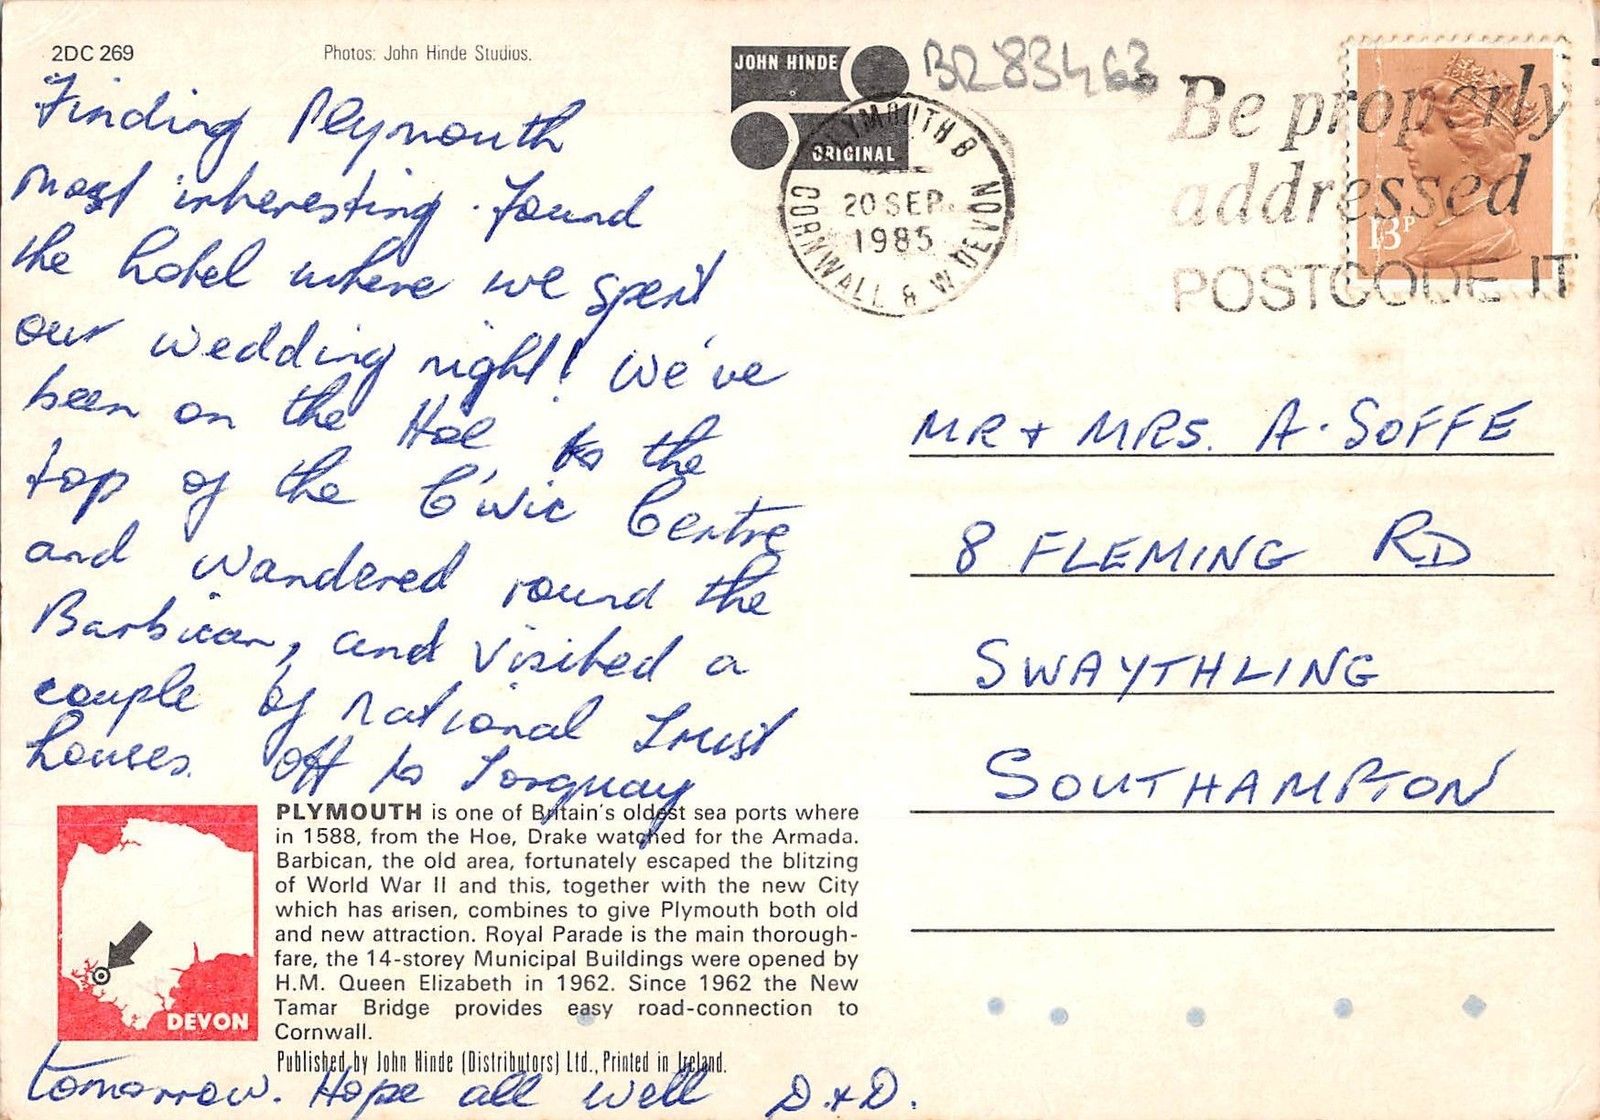 2DC 269
Photos: John Hinde Studios.
JOHN HINDE
ORIGINAL
BR83463
PLYMOUTH B
20 SEP.
1985
CORNWALL & W DEVON
Be properly
addressed
POSTCODE IT
13P
Finding Plymouth
most interesting. Found
the hotel where we spent
our wedding night! We've
been on the Hoe to the
top of the Civic Centre
and wandered round the
Barbican, and visited a
couple of National Trust
houses. Off to Torquay
tomorrow. Hope all well D.+D.
MR + MRS. A. SOFFE
8 FLEMING RD
SWAYTHLING
SOUTHAMPTON
PLYMOUTH is one of Britain's oldest sea ports where
in 1588, from the Hoe, Drake watched for the Armada.
Barbican, the old area, fortunately escaped the blitzing
of World War II and this, together with the new City
which has arisen, combines to give Plymouth both old
and new attraction. Royal Parade is the main thorough-
fare, the 14-storey Municipal Buildings were opened by
H.M. Queen Elizabeth in 1962. Since 1962 the New
Tamar Bridge provides easy road-connection to
Cornwall.
DEVON
Published by John Hinde (Distributors) Ltd., Printed in Ireland.